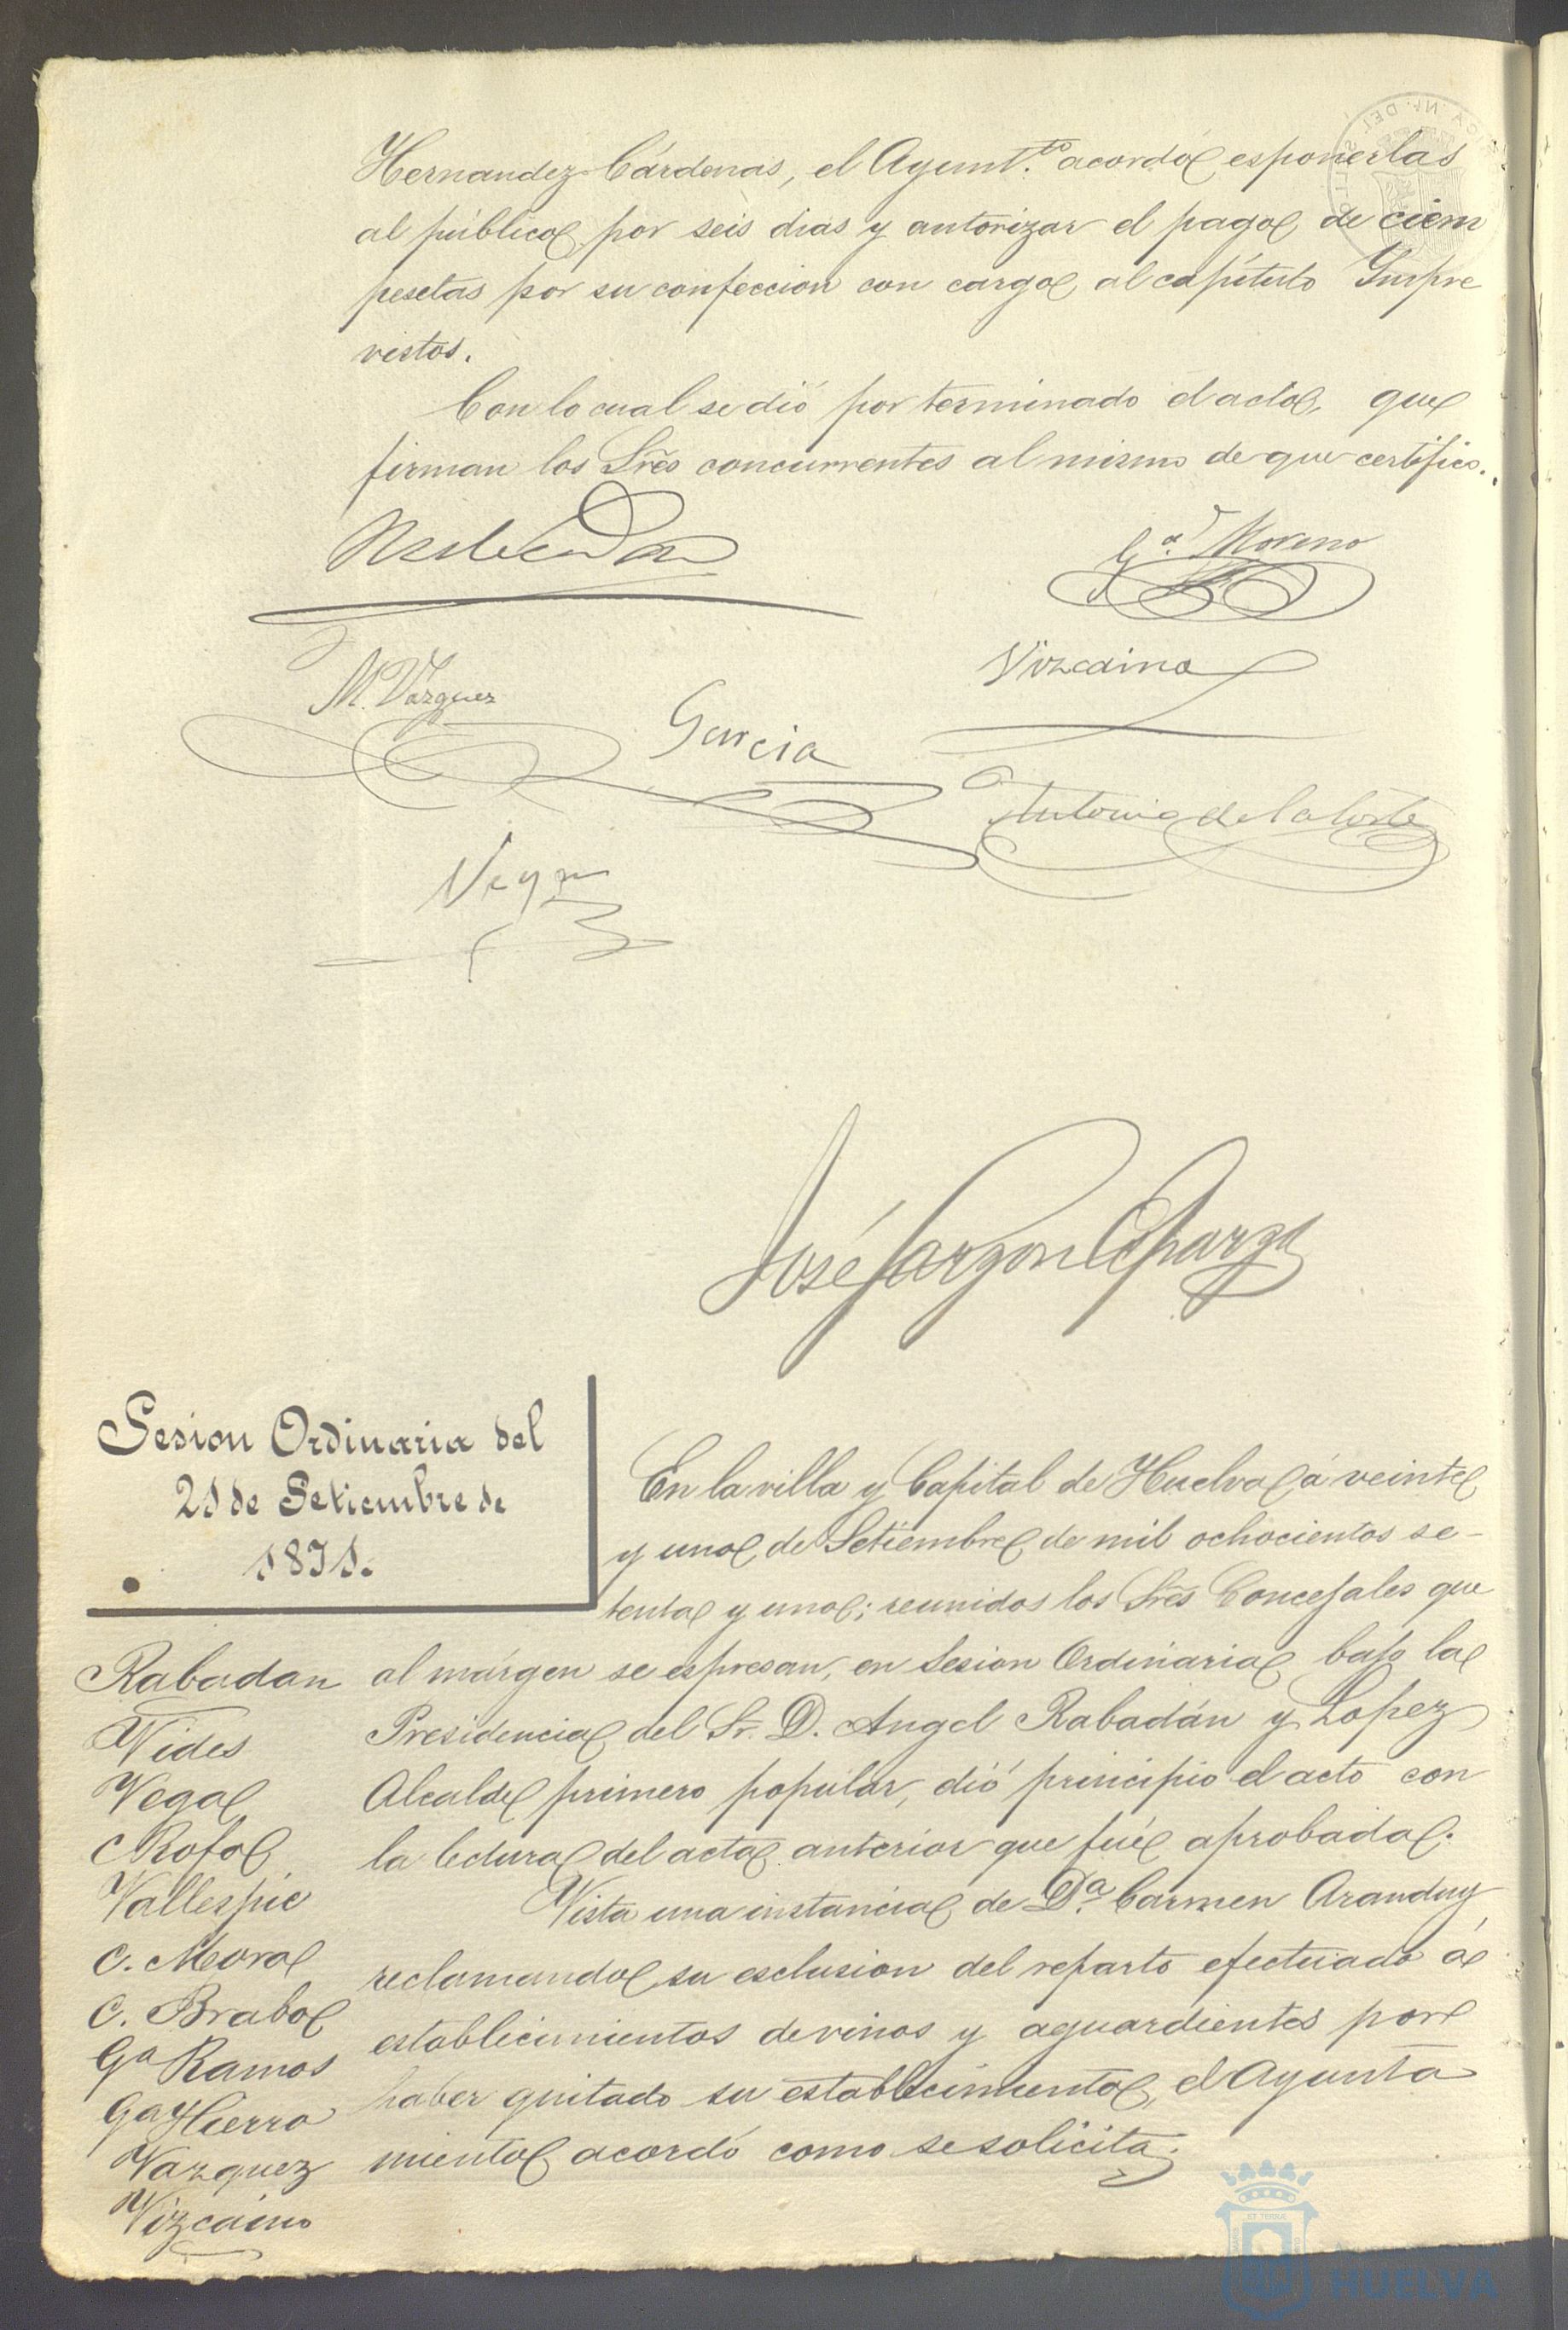 Hernandez Cárdenas, el Ayunt.to acordó esponerlas
al público por seis dias y autorizar el pago de cien
pesetas por su confeccion con cargo al capítulo Impre
vistos.
Con lo cual se dió por terminado el acto, que
firman los Sres concurrentes al mismo de que certifico.
Ga. Moreno
M. Vazquez
Vizcaino
Garcia
Antonio de la Corte
Vega
José
Sesion Ordinaria del
21 de Setiembre de
1871.
En la villa y Capital de Huelva á veinte
y uno de Setiembre de mil ochocientos se-
tenta y uno; reunidos los Sres Concejales que
al márgen se espresan, en Sesion Ordinaria bajo la
Presidencia del Sr. D. Angel Rabadán y Lopez
Alcalde primero popular, dió principio el acto con
la lectura del acta anterior que fué aprobada.
Vista una instancia de Da. Carmen Aranduy
reclamando su esclusion del reparto efectuado á
establecimientos de vinos y aguardientes por
haber quitado su establecimiento, el Ayunta
miento acordó como se solicita.
Rabadan
Vides
Vega
Rofo
Vallespie
C. Mora
C. Brabo
Ga Ramos
Ga Hierro
Vazquez
Vizcaino
HUELVA